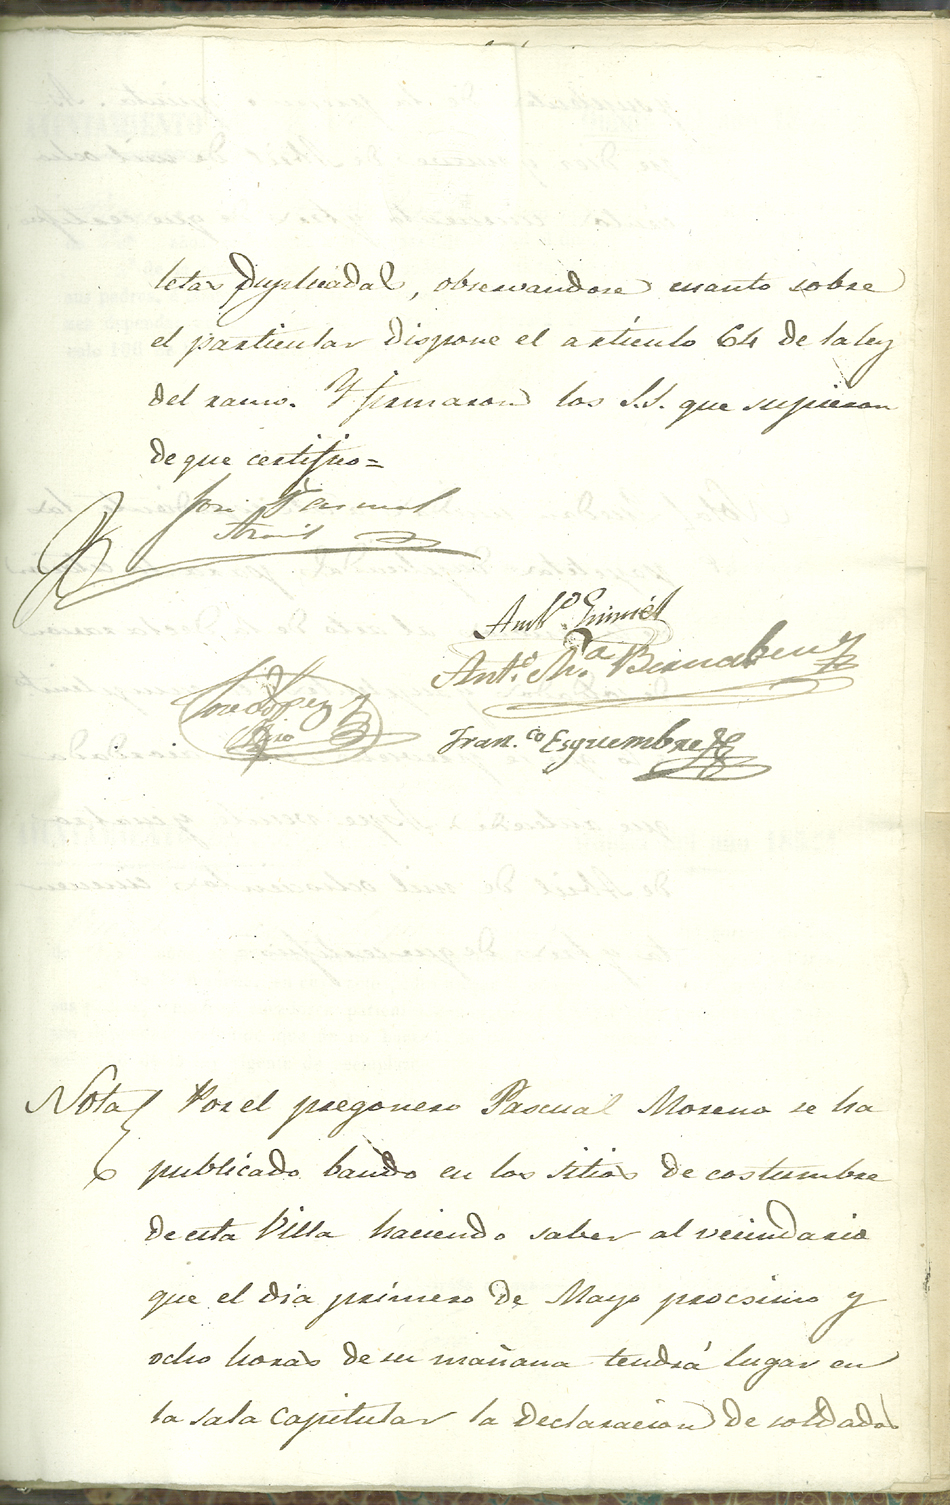 letas duplicadas, observandose cuanto sobre
el particular dispone el articulo 64 de la ley
del ramo. Y firmaron los S.S. que supieron
de que certifico=
José Pascual
Antº
Antº Mª Bernabeu y
Jose Lopez y
Franco Esquembre
Nota Por el pregonero Pascual Moreno se ha
publicado bando en los sitios de costumbre
de esta Villa haciendo saber al vecindario
que el dia primero de Mayo procsimo y
ocho horas de su mañana tendrá lugar en
la sala capitular la declaracion de soldados